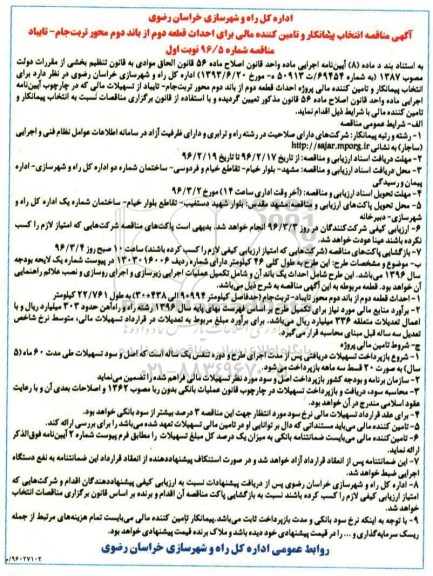 اداره کل راه و شهرسازی خراسان رضوی
آگهی مناقصه انتخاب پیمانکار و تامین کننده مالی برای احداث قطعه دوم از باند دوم محور تربت‌جام- تایباد
مناقصه شماره ۹۶/۵ نوبت اول
به استناد بند د ماده (۸) آیین‌نامه اجرایی ماده واحد قانون اصلاح ماده ۵۶ قانون الحاق موادی به قانون تنظیم بخشی از مقررات دولت
مصوب ۱۳۸۷ (به شماره ۶۹۴۵۴/ت ۵۰۹۱۳ ه- مورخ ۱۳۹۳/۶/۲۰) اداره کل راه و شهرسازی خراسان رضوی در نظر دارد برای
انتخاب پیمانکار و تامین کننده مالی پروژه احداث قطعه دوم از باند دوم محور تربت‌جام- تایباد از تسهیلات مالی که در چارچوب آیین‌نامه
اجرایی ماده واحد قانون اصلاح ماده ۵۶ قانون مذکور تعیین گردیده و با استفاده از قانون برگزاری مناقصات نسبت به انتخاب پیمانکار و
تامین کننده مالی با شرایط ذیل اقدام نماید.
الف- شرایط عمومی مناقصه
۱- رشته و رتبه پیمانکار: شرکت‌های دارای صلاحیت در رشته راه و ترابری و دارای ظرفیت آزاد در سامانه اطلاعات عوامل نظام فنی و اجرایی
(ساجار) به نشانی http://sajar.mporg.ir
۲- مهلت دریافت اسناد ارزیابی و مناقصه: از تاریخ ۹۶/۲/۱۷ تا تاریخ ۹۶/۲/۱۹
۳- محل دریافت اسناد ارزیابی و مناقصه: مشهد- بلوار خیام- تقاطع خیام و فردوسی- ساختمان شماره دو اداره کل راه و شهرسازی- اداره
پیمان و رسیدگی
۴- مهلت تحویل اسناد ارزیابی و مناقصه: (آخر وقت اداری ساعت ۱۴) مورخ ۹۶/۳/۲
۵- محل تحویل پاکت‌های ارزیابی و مناقصه مشهد مقدس: بلوار شهید دستغیب- تقاطع بلوار خیام- ساختمان شماره یک اداره کل راه و
شهرسازی- دبیرخانه
۶- ارزیابی کیفی شرکت‌کنندگان در روز ۹۶/۳/۳ انجام خواهد شد. بدیهی است پاکت‌های مناقصه شرکت‌هایی که امتیاز لازم را کسب
نکرده باشند عینا عودت خواهد شد.
۷- بازگشایی پاکت‌های مناقصه (شرکت‌هایی که امتیاز ارزیابی کیفی لازم را کسب کرده باشند) ساعت ۱۰ صبح روز ۹۶/۳/۴
ب- موضوع و مشخصات طرح: این طرح به طول کلی ۴۶ کیلومتر دارای شماره ردیف ۱۳۰۳۰۱۶۰۰۶ در پیوست شماره یک لایحه بودجه
سال ۱۳۹۶ می‌باشد. این طرح شامل احداث یک باند آن و شامل تکمیل عملیات اجرایی زیرسازی و اجرای روسازی و نصب علائم راهنمایی
آن خواهد بود. قطعه مربوطه به این آگهی مناقصه به شرح ذیل می‌باشد.
۱- احداث قطعه دوم از باند دوم محور تایباد- تربت‌جام حدفاصل کیلومتر ۹۰+۹۹۴ الی ۳۰+۴۳۸ به طول ۲۲/۷۶۱ کیلومتر
۲- برآورد منابع مالی مورد نیاز برای تکمیل طرح بر اساس فهرست بهای پایه سال ۱۳۹۶ رشته راه و راه‌آهن حدود ۳۰۳ میلیارد ریال و با
اعمال تعدیلات متعلقه ۳۳۶ میلیارد ریال می‌باشد. برای برآورد مبلغ مربوط به تعدیلات در قرارداد تسهیلات مالی، متوسط نرخ شاخص
تعدیل سه سال قبل مبنای محاسبه قرار می‌گیرد.
ج- شروط تامین مالی پروژه
۱- شروع بازپرداخت تسهیلات دریافتی پس از مدت اجرای طرح و دوره تنفس یک ساله است که اصل و سود تسهیلات طی مدت ۶۰ ماه (۵
سال) به صورت ۲۰ قسط سه ماهه بازپرداخت می‌شود.
۲- سازمان برنامه و بودجه کشور بازپرداخت اصل و سود مورد نظر تسهیلات مالی فراهم شده را تضمین می‌نماید
۳- محاسبه سود، دریافت و بازپرداخت تسهیلات در چارچوب قانون عملیات بانکی بدون ربا مصوب ۱۳۶۲ و اصلاحات بعدی آن و با رعایت
عقود اسلامی مندرج در آن خواهد بود.
۴- برای عقد قرارداد تسهیلات مالی نرخ سود مورد انتظار جهت این مناقصه ۳ درصد بیشتر از سود بانکی خواهد بود.
۵- تامین کننده مالی می‌باید مستنداتی که دال بر توانایی او در تامین مالی تسهیلات تعهد شده می‌باشد را برای بررسی ارائه کند.
۶- تامین کننده مالی می‌بایست ضمانتنامه بانکی به میزان یک درصد کل مبلغ تسهیلات را مطابق فرم پیوست شماره ۲ آیین‌نامه فوق‌الذکر
ارائه نماید.
۷- این ضمانتنامه پس از انعقاد قرارداد آزاد خواهد شد و در صورت استنکاف پیشنهاددهنده از انعقاد قرارداد این ضمانتنامه به نفع دستگاه
اجرایی ضبط خواهد شد.
۸- اداره کل راه و شهرسازی خراسان رضوی پس از دریافت پیشنهادات نسبت به ارزیابی کیفی پیشنهاددهندگان اقدام و شرکت‌هایی که
امتیاز ارزیابی کیفی لازم را کسب کرده باشند نسبت به بازگشایی پاکت مناقصه آن اقدام و برنده بر اساس قانون برگزاری مناقصات انتخاب
خواهد شد.
۹- با توجه به اینکه نرخ سود بانکی و مدت بازپرداخت ثابت می‌باشد. پیمانکار/تامین کننده مالی می‌بایست تمام هزینه‌های مرتبط از جمله
ریسک سرمایه‌گذاری و ... را در قیمت پیشنهادی خود دیده باشد و ملاک برنده قیمت پیشنهادی خواهد بود.
روابط عمومی اداره کل راه و شهرسازی خراسان رضوی
۹۶۰۲۷۱۰۲/م